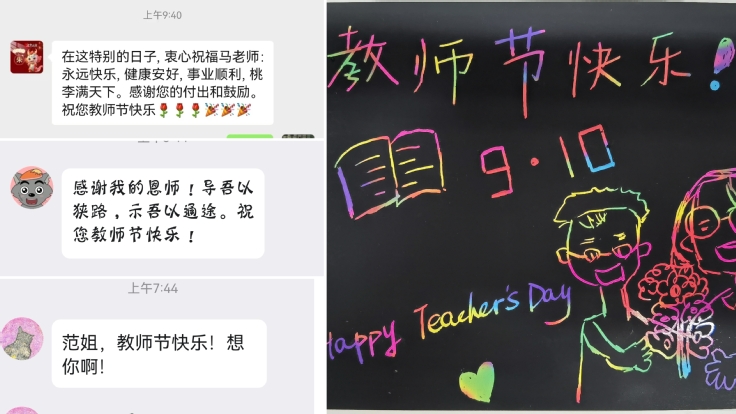 上午9:40
在这特别的日子, 衷心祝福马老师:
永远快乐, 健康安好, 事业顺利, 桃
李满天下。感谢您的付出和鼓励。
祝您教师节快乐🌹🌹🌹🎉🎉🎉
感谢我的恩师！导吾以
狭路，示吾以通途。祝
您教师节快乐！
上午7:44
范姐，教师节快乐！想
你啊!
教师节快乐!
9·10
Happy Teacher's Day